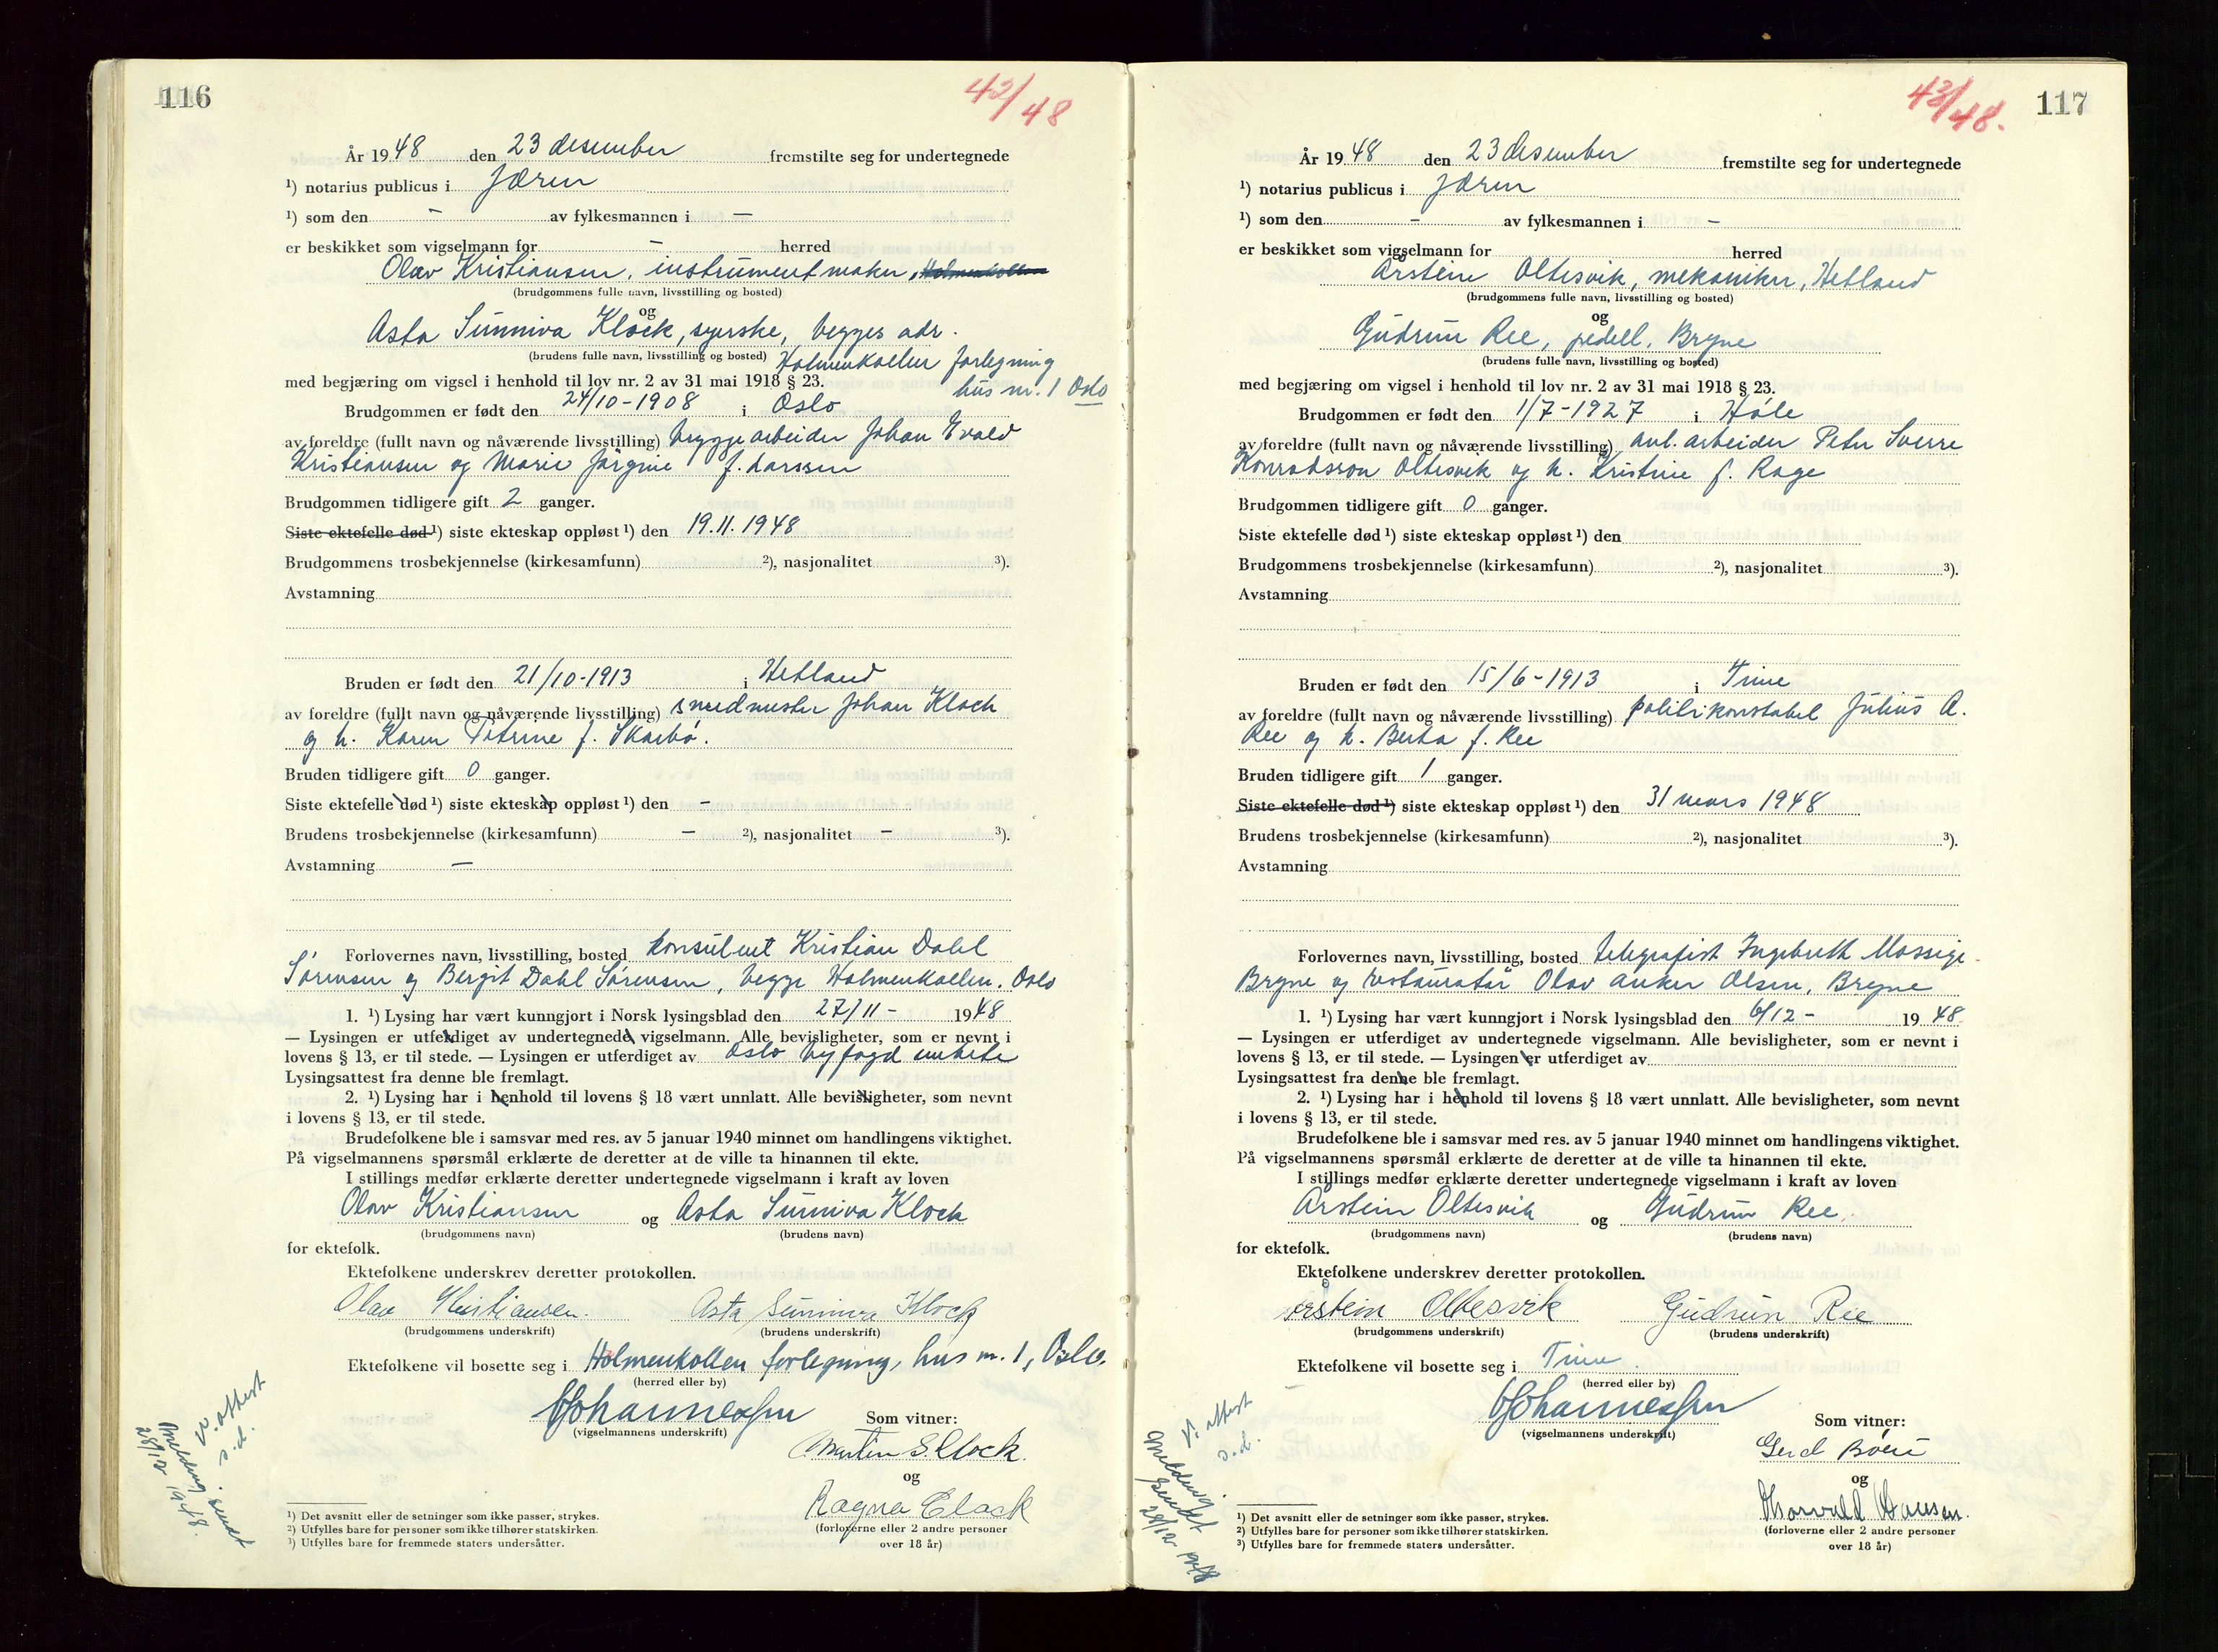 116
42/48
År 1948 den 23 desember fremstilte seg for undertegnede
¹) notarius publicus i Jæren
¹) som den - av fylkesmannen i -
er beskikket som vigselmann for - herred
Olav Kristiansen, instrumentmaker, Holmenkollen
(brudgommens fulle navn, livsstilling og bosted)
og
Asta Sunniva Klock, syerske, begges adr.
(brudens fulle navn, livsstilling og bosted) Holmenkollen forlegning
med begjæring om vigsel i henhold til lov nr. 2 av 31 mai 1918 § 23. hus nr. 1 Oslo
Brudgommen er født den 24/10-1908 i Oslo
av foreldre (fullt navn og nåværende livsstilling) bryggearbeider Johan Evald
Kristiansen og Marie Jørgine f. Larssen
Brudgommen tidligere gift 2 ganger.
Siste ektefelle død ¹) siste ekteskap oppløst ¹) den 19.11.1948
Brudgommens trosbekjennelse (kirkesamfunn) ²), nasjonalitet ³).
Avstamning
Bruden er født den 21/10-1913 i Hetland
av foreldre (fullt navn og nåværende livsstilling) smedmester Johan Klock
og h. Karen Petrine f. Skarbø.
Bruden tidligere gift 0 ganger.
Siste ektefelle død ¹) siste ekteskap oppløst ¹) den -
Brudens trosbekjennelse (kirkesamfunn) - ²), nasjonalitet - ³).
Avstamning -
Forlovernes navn, livsstilling, bosted konsulent Kristian Dahl
Sørensen og Bergit Dahl Sørensen, begge Holmenkollen, Oslo
1. ¹) Lysing har vært kunngjort i Norsk lysingsblad den 27/11 - 1948
— Lysingen er utferdiget av undertegnede vigselmann. Alle bevisligheter, som er nevnt i
lovens § 13, er til stede. — Lysingen er utferdiget av Oslo byfogd embete
Lysingsattest fra denne ble fremlagt.
2. ¹) Lysing har i henhold til lovens § 18 vært unnlatt. Alle bevisligheter, som nevnt
i lovens § 13, er til stede.
Brudefolkene ble i samsvar med res. av 5 januar 1940 minnet om handlingens viktighet.
På vigselmannens spørsmål erklærte de deretter at de ville ta hinannen til ekte.
I stillings medfør erklærte deretter undertegnede vigselmann i kraft av loven
Olav Kristiansen og Asta Sunniva Klock
(brudgommens navn) (brudens navn)
for ektefolk.
Ektefolkene underskrev deretter protokollen.
Olav Kristiansen. Asta Sunniva Klock
(brudgommens underskrift) (brudens underskrift)
Ektefolkene vil bosette seg i Holmenkollen forlegning, hus nr. 1, Oslo.
(herred eller by)
Johannessen
(vigselmannens underskrift)
Som vitner:
Martin S. Clock.
og
Ragna Clock
(forloverne eller 2 andre personer
over 18 år)
V. attest
s. d.
Melding sendt
28/12 1948.
¹) Det avsnitt eller de setninger som ikke passer, strykes.
²) Utfylles bare for personer som ikke tilhører statskirken.
³) Utfylles bare for fremmede staters undersåtter.
43/48.
117
År 1948 den 23 desember fremstilte seg for undertegnede
¹) notarius publicus i Jæren
¹) som den - av fylkesmannen i -
er beskikket som vigselmann for herred
Årstein Oltesvik, mekaniker, Hetland
(brudgommens fulle navn, livsstilling og bosted)
og
Gudrun Ree, pedell, Bryne
(brudens fulle navn, livsstilling og bosted)
med begjæring om vigsel i henhold til lov nr. 2 av 31 mai 1918 § 23.
Brudgommen er født den 1/7-1927 i Høle
av foreldre (fullt navn og nåværende livsstilling) anl. arbeider Peter Sverre
Konradsson Oltesvik og h. Kristine f. Rage
Brudgommen tidligere gift 0 ganger.
Siste ektefelle død ¹) siste ekteskap oppløst ¹) den
Brudgommens trosbekjennelse (kirkesamfunn) ²), nasjonalitet ³).
Avstamning
Bruden er født den 15/6-1913 i Time
av foreldre (fullt navn og nåværende livsstilling) politikonstabel Julius A.
Ree og h. Berta f. Ree
Bruden tidligere gift 1 ganger.
Siste ektefelle død ¹) siste ekteskap oppløst ¹) den 31 mars 1948
Brudens trosbekjennelse (kirkesamfunn) ²), nasjonalitet ³).
Avstamning
Forlovernes navn, livsstilling, bosted telegrafist Ingebreth Mossige
Bryne og restauratør Olav Anker Olsen, Bryne
1. ¹) Lysing har vært kunngjort i Norsk lysingsblad den 6/12 - 1948.
— Lysingen er utferdiget av undertegnede vigselmann. Alle bevisligheter, som er nevnt i
lovens § 13, er til stede. — Lysingen er utferdiget av
Lysingsattest fra denne ble fremlagt.
2. ¹) Lysing har i henhold til lovens § 18 vært unnlatt. Alle bevisligheter, som nevnt
i lovens § 13, er til stede.
Brudefolkene ble i samsvar med res. av 5 januar 1940 minnet om handlingens viktighet.
På vigselmannens spørsmål erklærte de deretter at de ville ta hinannen til ekte.
I stillings medfør erklærte deretter undertegnede vigselmann i kraft av loven
Årstein Oltesvik og Gudrun Ree.
(brudgommens navn) (brudens navn)
for ektefolk.
Ektefolkene underskrev deretter protokollen.
Årstein Oltesvik Gudrun Ree
(brudgommens underskrift) (brudens underskrift)
Ektefolkene vil bosette seg i Time.
(herred eller by)
Johannessen
(vigselmannens underskrift)
Som vitner:
Gerd Bøen
og
Thorvald Hansen.
(forloverne eller 2 andre personer
over 18 år)
V. attest
s. d.
Melding
sendt
28/12 1948
¹) Det avsnitt eller de setninger som ikke passer, strykes.
²) Utfylles bare for personer som ikke tilhører statskirken.
³) Utfylles bare for fremmede staters undersåtter.